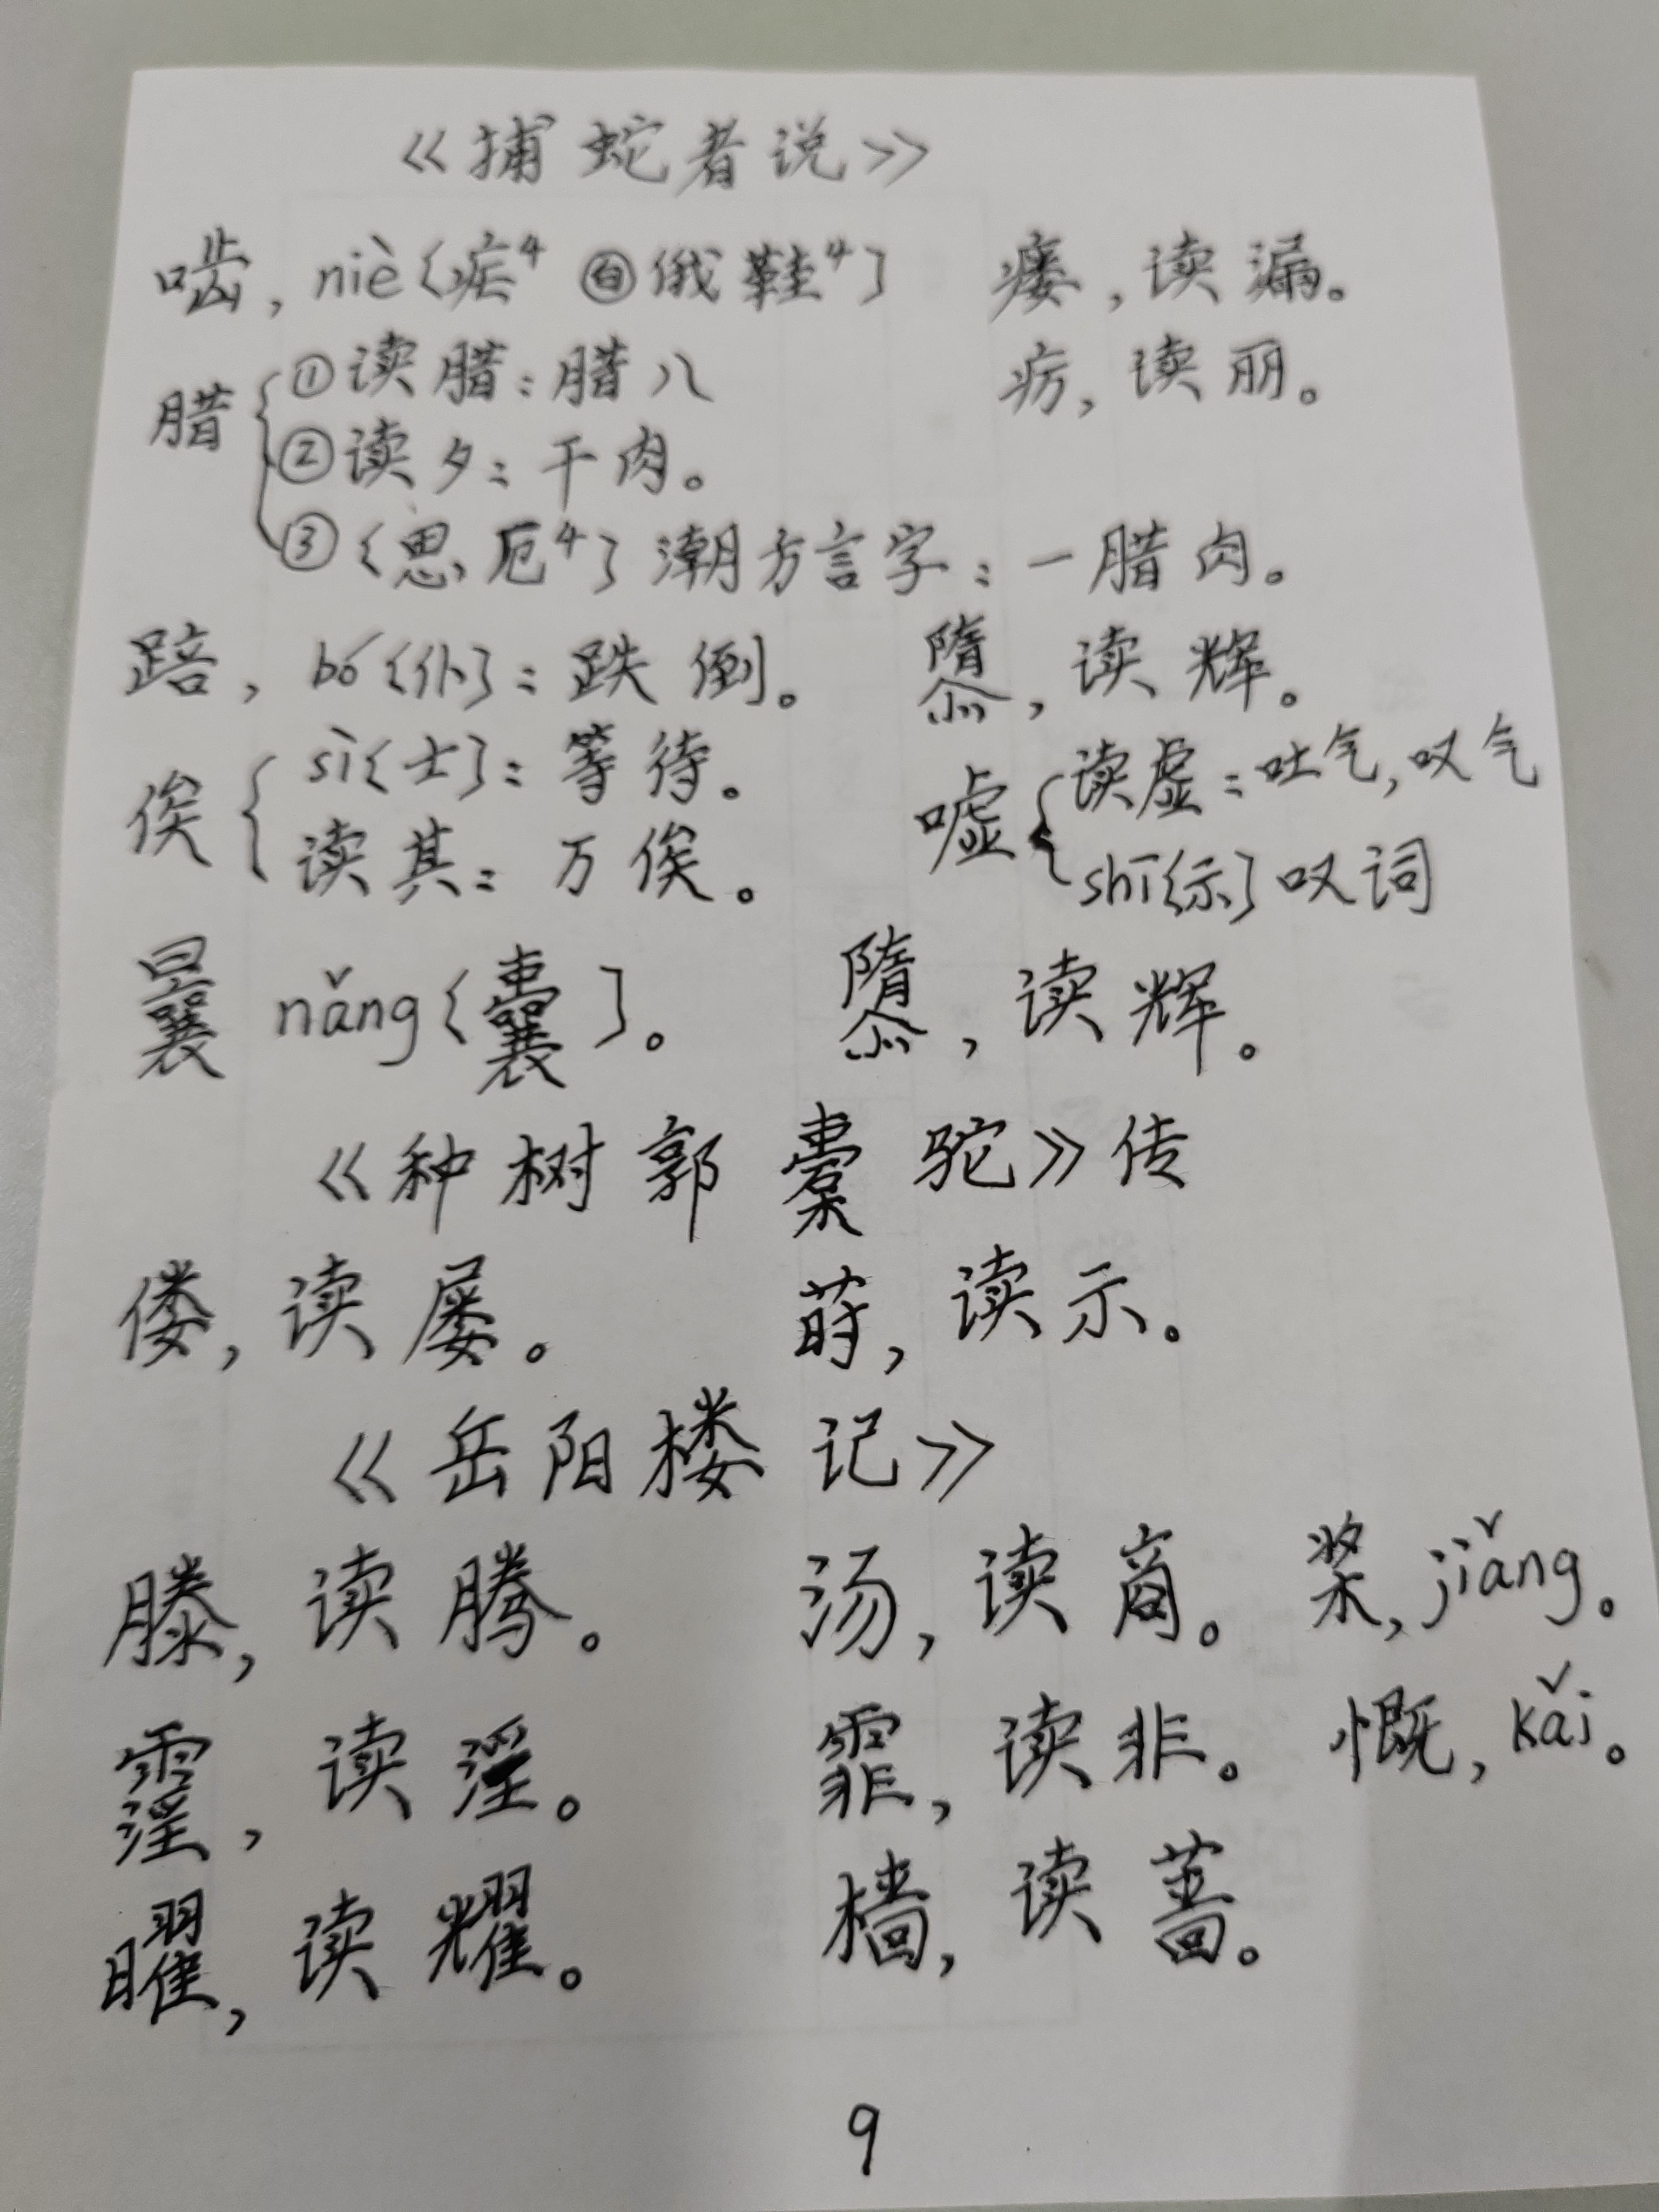 《捕蛇者说》
啮, niè〔疟⁴ ㊒俄鞋⁴〕 瘘, 读漏。
腊 ①读腊: 腊八 疠, 读丽。
②读夕: 干肉。
③〔思厄⁴〕潮方言字: 一腊肉。
踣, bó〔仆〕: 跌倒。 隳, 读辉。
俟 sì〔士〕: 等待。 嘘 读虚: 吐气, 叹气
读其: 万俟。 shī〔示〕叹词
曩 nǎng〔囊〕。 隳, 读辉。
《种树郭橐驼》传
偻, 读屡。 莳, 读示。
《岳阳楼记》
滕, 读腾。 汤, 读商。 桨, jiǎng。
霪, 读淫。 霏, 读非。 慨, kǎi。
曜, 读耀。 樯, 读蔷。
9